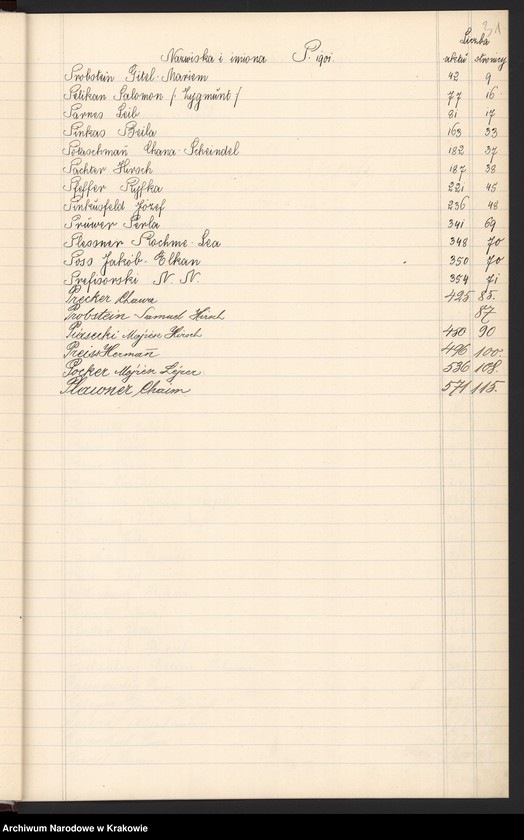 31
Liczba
Nazwiska i imiona P. 1901. aktu stronicy
Probstein Gitel Mariem 42 9
Pelikan Salomon / Zygmunt / 77 16
Parnes Leib 81 17
Pinkas Beila 163 33
Potaschmań Chana Scheindel 182 37
Pachter Hirsch 187 38
Pfeffer Ryfka 221 45
Pinkusfeld Józef 236 48
Prüwer Perla 341 69
Plessner Rochme Lea 348 70
Poss Jakób Elkan 350 70
Prefisorski N. N. 354 71
Precker Chawa 425 85.
Probstein Samuel Hirsch 87
Piasecki Mojżesz Hirsch 450 90
Preiss Hermań 496 100.
Pocker Mojżesz Lejzer 536 108.
Plawner Chaim 571 115.
Archiwum Narodowe w Krakowie